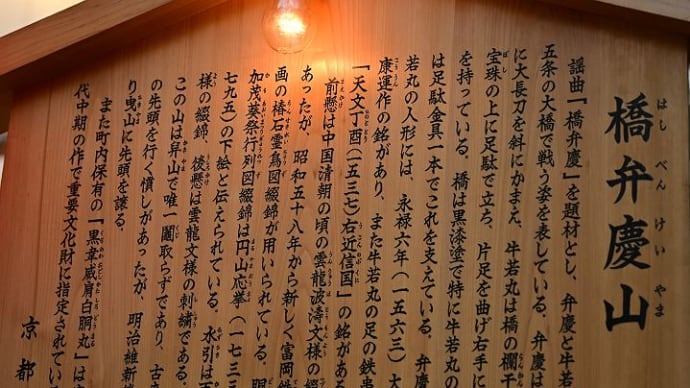 橋弁慶山
はしべんけいやま
謡曲「橋弁慶」を題材とし、弁慶と牛若
五条の大橋で戦う姿を表している。弁慶は
に大長刀を斜にかまえ、牛若丸は橋の欄干
宝珠の上に足駄で立ち、片足を曲げ右手に
を持っている。橋は黒漆塗で特に牛若丸の
は足駄金具一本でこれを支えている。弁慶
若丸の人形には、永禄六年(一五六三)大
康運作の銘があり、また牛若丸の足の鉄串
「天文丁酉(一五三七)右近信国」の銘がある
前懸は中国清朝の頃の雲龍波濤文様の綴
あったが 昭和五十八年から新しく富岡鉄
画の椿石霊鳥図綴錦が用いられている。胴
加茂葵祭行列図綴錦は円山応挙(一七三
七九五)の下絵と伝えられている。水引は
様の綴錦、後懸は雲龍文様の刺繍である。
この山は舁山で唯一鬮取らずであり、古
の先頭を行く慣しがあったが、明治維新
り曳山に先頭を譲る。
また町内保有の「黒韋威肩白胴丸」は
代中期の作で重要文化財に指定されてい
京都